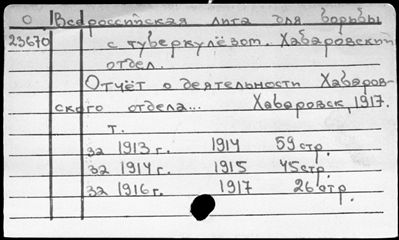 О Всероссийская лига для борьбы
23670 с туберкулёзом. Хабаровский
отдел.
Отчёт о деятельности Хабаров-
ского отдела... Хабаровск, 1917.
т.
за 1913 г. 1914 59 стр.
за 1914 г. 1915 45 стр.
за 1916 г. 1917 26 стр.